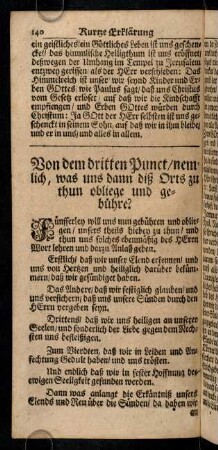 140 Kurtze Erklärung
ein geistliches ein Göttliches Leben ist uns geschen-
cket / das himmlische Heiligthum ist uns eröffnet
deßwegen der Umhang im Tempel zu Jerusalem
entzwey gerissen als der HErr verschieden: Das
Himmelreich ist unser wir seynd Kinder und Er-
ben GOttes wie Paulus sagt / daß uns Christus
vom Gesetz erlöset / auf daß wir die Kindschafft
empfiengen / und Erben GOttes würden durch
Christum: Ja GOtt der HErr selbsten ist uns ge-
schenckt in seinem Sohn / auf daß wir in ihm bleibe
und er in uns / und alles in allem.
Von dem dritten Punct / nem-
lich, was uns dann diß Orts zu
thun obliege und ge-
bühre?
Fünfferley will uns nun gebühren und oblie-
gen / unsers theils hiebey zu thun / und
thun uns solches ebenmäßig des HErrn
Wort lehren und derzu Anlaß geben.
Erstlich / daß wir unser Elend erkennen / und
uns von Hertzen und heiliglich darüber bekümm-
mern / daß wir gesündiget haben.
Das Andere / daß wir festiglich glauben / und
uns versichern / daß uns unsere Sünden durch den
HErrn vergeben seyn.
Drittens / daß wir uns heiligen an unseren
Leib Seelen / und sonderlich der Liebe gegen dem Nech-
sten uns befleißigen.
Zum Vierdten / daß wir in Leiden und An-
fechtung Gedult haben / und uns trösten.
Und endlich daß wir in fester Hoffnung des
ewigen Seeligkeit gefunden werden.
Dann was anlangt die Erkäntniß unsers
Elends und Reu über die Sünden / da haben wir